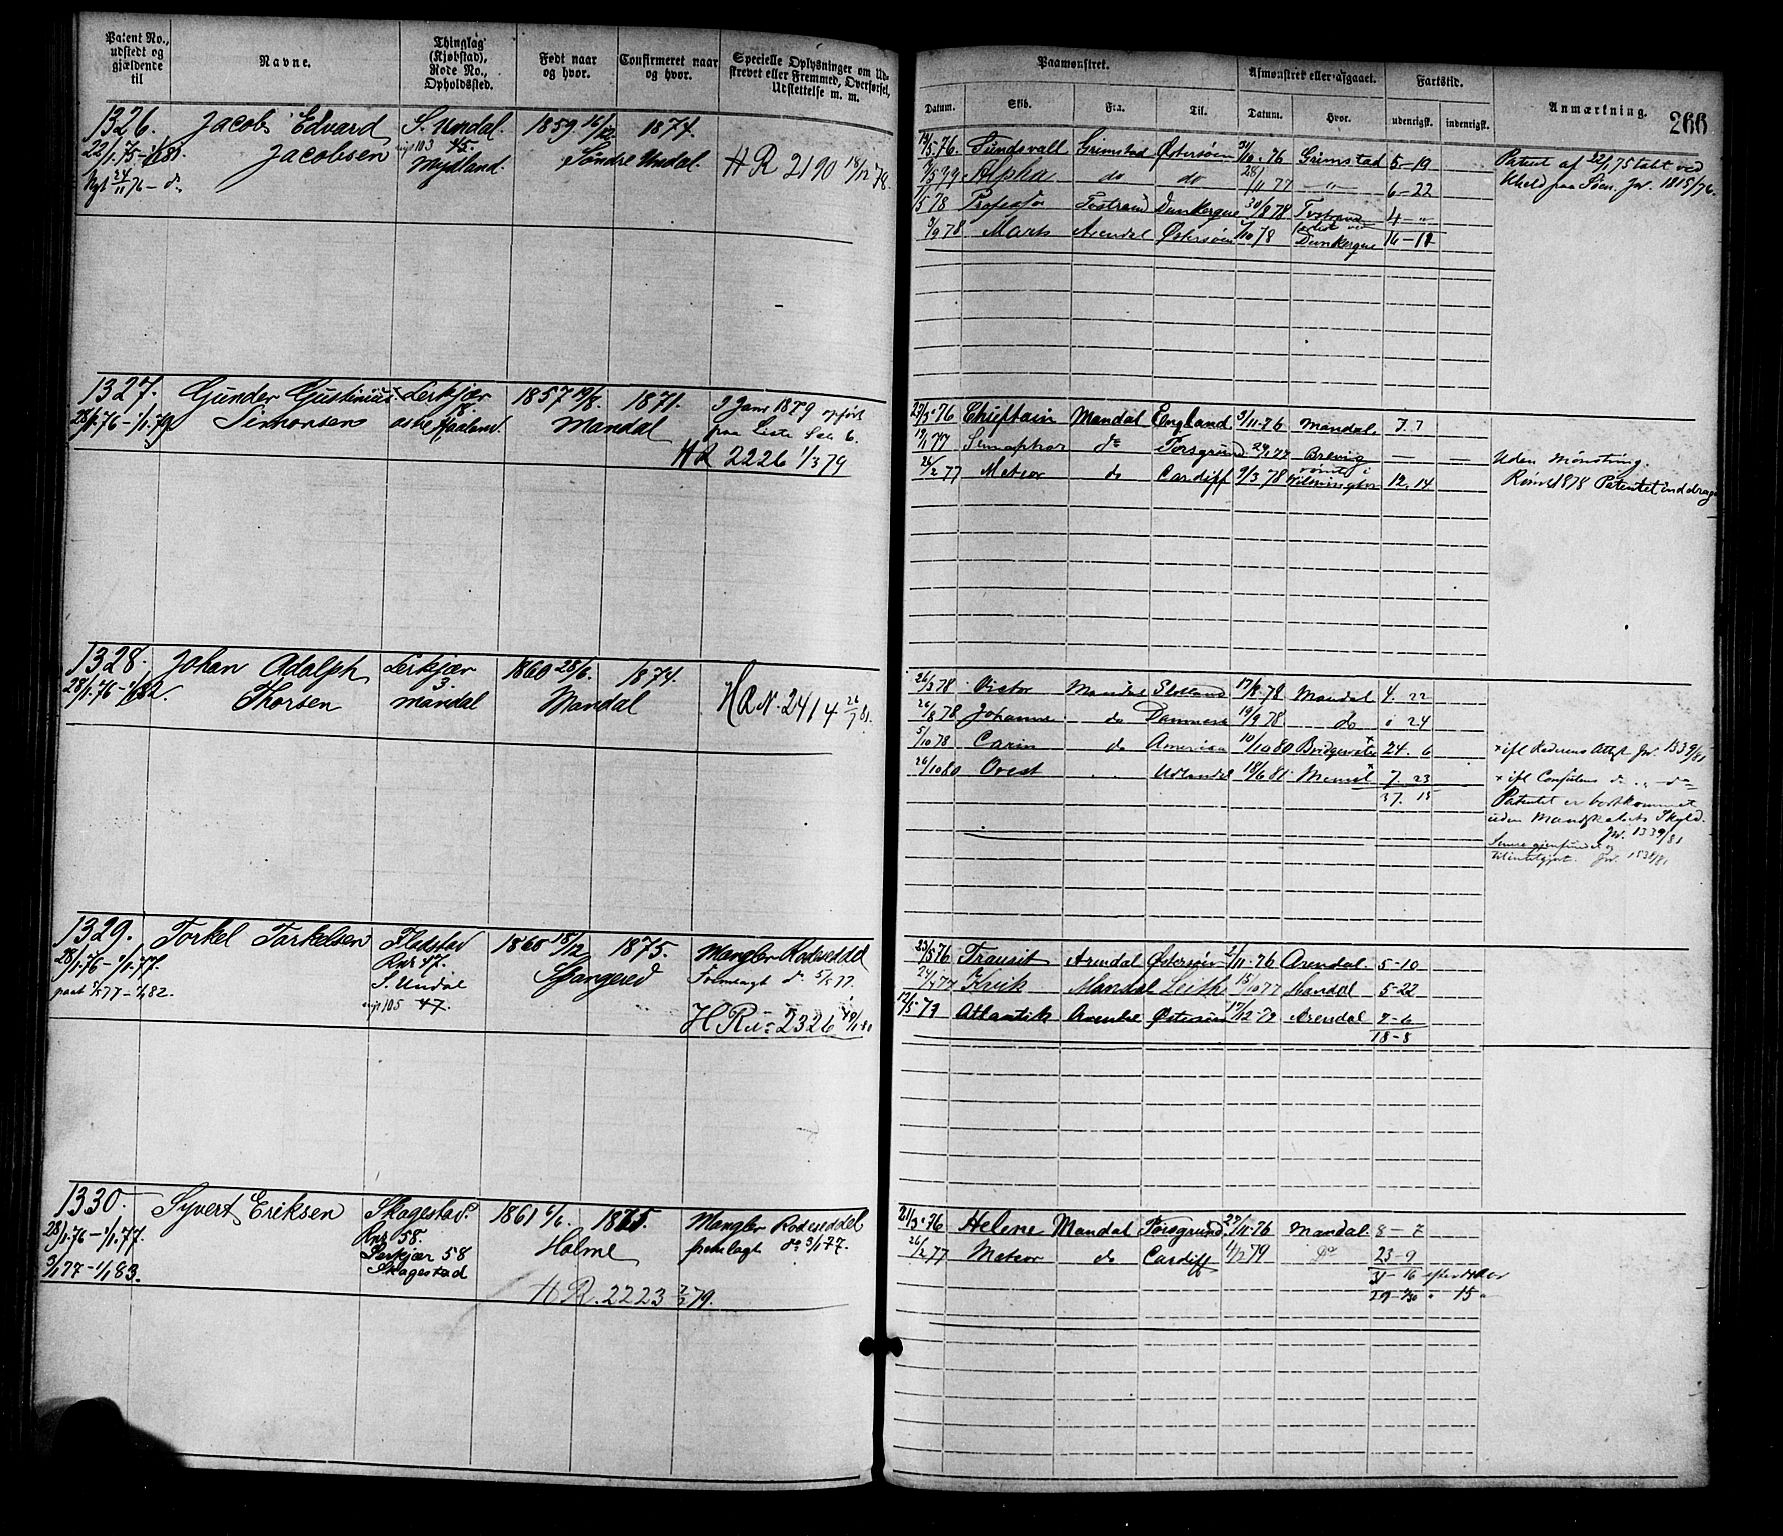 Patent No., udstedt og gjældende til
Navne.
Thinglag (Kjøbstad), Rode No., Opholdssted.
Født naar og hvor.
Confirmeret naar og hvor.
Specielle Oplysninger om Udskrevet eller Fremmed, Overførsel, Udslettelse m. m.
Paamønstret.
Datum.
Skib.
Fra.
Til.
Afmønstret eller afgaaet.
Datum.
Hvor.
Fartstid.
udenrigsk.
indenrigsk.
Anmærkning.
266
1326. Jacob Edvard S. Undal. 1859 16/12 1874.
22/1.75-1/1.81. Jacobsen 103 45. Søndre Undal. HR 2190 18/12 78
Nyt 24/11 76 - do Mydland.
19/5.76. Sundsvall Grimstad Østersøen 31/10.76 Grimstad 5-19 Patent af 22/1 75 tabt ved
Alpha do do 28/11 77 -"- 6-22 Uheld paa Søen. Jr. 1815/76.
1/5 78 Professor Tvstrand Dunkerque 30/8 78 4-"
3/9 78 Mars Arendal Østersøen Dunkerque
1327. Gunder Gustinius Lerkjær 1857 19/8. 1871. 9 Jans 1879 opført
28/1.76-1/1.79 Simonsen 18. Mandal paa Liste Sec 6.
HR 2226 1/3 79
27/5.76 Chieftain Mandal England 3/11.76 Mandal. 7.7
19/1 77 do Porsgrund Brevig — — Uden Mønstring.
26/2 77 Meteor do Cardiff 9/3 78 rømte i 12.14 Rømt 1878 Patentet inddrag
1328. Johan Adolph Lerkjær 1860 28/6. 1874.
28/1.76-1/1 82. Thorsen 3. Mandal HR N. 2414 22/7 81.
mandal
26/3 78 Mandal 17/8.78 Mandal 4. 22
26/8 78 Johanne do Danmark 19/9 78 do " 24
5/10 78 Carin do America 10/10 80 Bridgewater 24. 6 × ifl Rederens Attst Jr. 1339/81
26/10 80 " " Udlandet 18/6 81 7. 23 × ifl Consulens do " - do
37. 15 Patentet er bortkommet
uden Mandskabets Skyld.
Jr. 1339/81
Senere gjenfundet og
tilintetgjort. Jr. 1538/81
1329. Torkel Tarkelsen Fladstad 1860 18/12 1875. Mangler Rodeseddel
28/1.76-1/1.77. Rnr 47. Spangereid Fremlagt do 5/1 77.
77-1/1 82. S. Undal HR No 2326
105 47.
23/5 76 Transit Arendal Østersøen 2/11.76 Arendal. 5-10
24/4 77 Mandal Leith 15/10 77 Mandal 5-22
12/5 79 Atlantik Arendal Østersøen 17/12.79 Arendal 7-6
18-8
1330. Syvert Eriksen Skagestad. 1861 6/6. 1875. Mangler Rodeseddel
28/1.76-1/1.77. Rnr 58. Holme fremlagt do 3/1 77.
3/1 77-1/1 83. Lerkjær 58
Skagestad
HR. 2223 79.
21/5.76 Helene Mandal Porsgrund 27/11.76 Mandal 8-7
26/2 77 Meteor do Cardiff 4/12 79 do 23-9
31-16
" 15 "